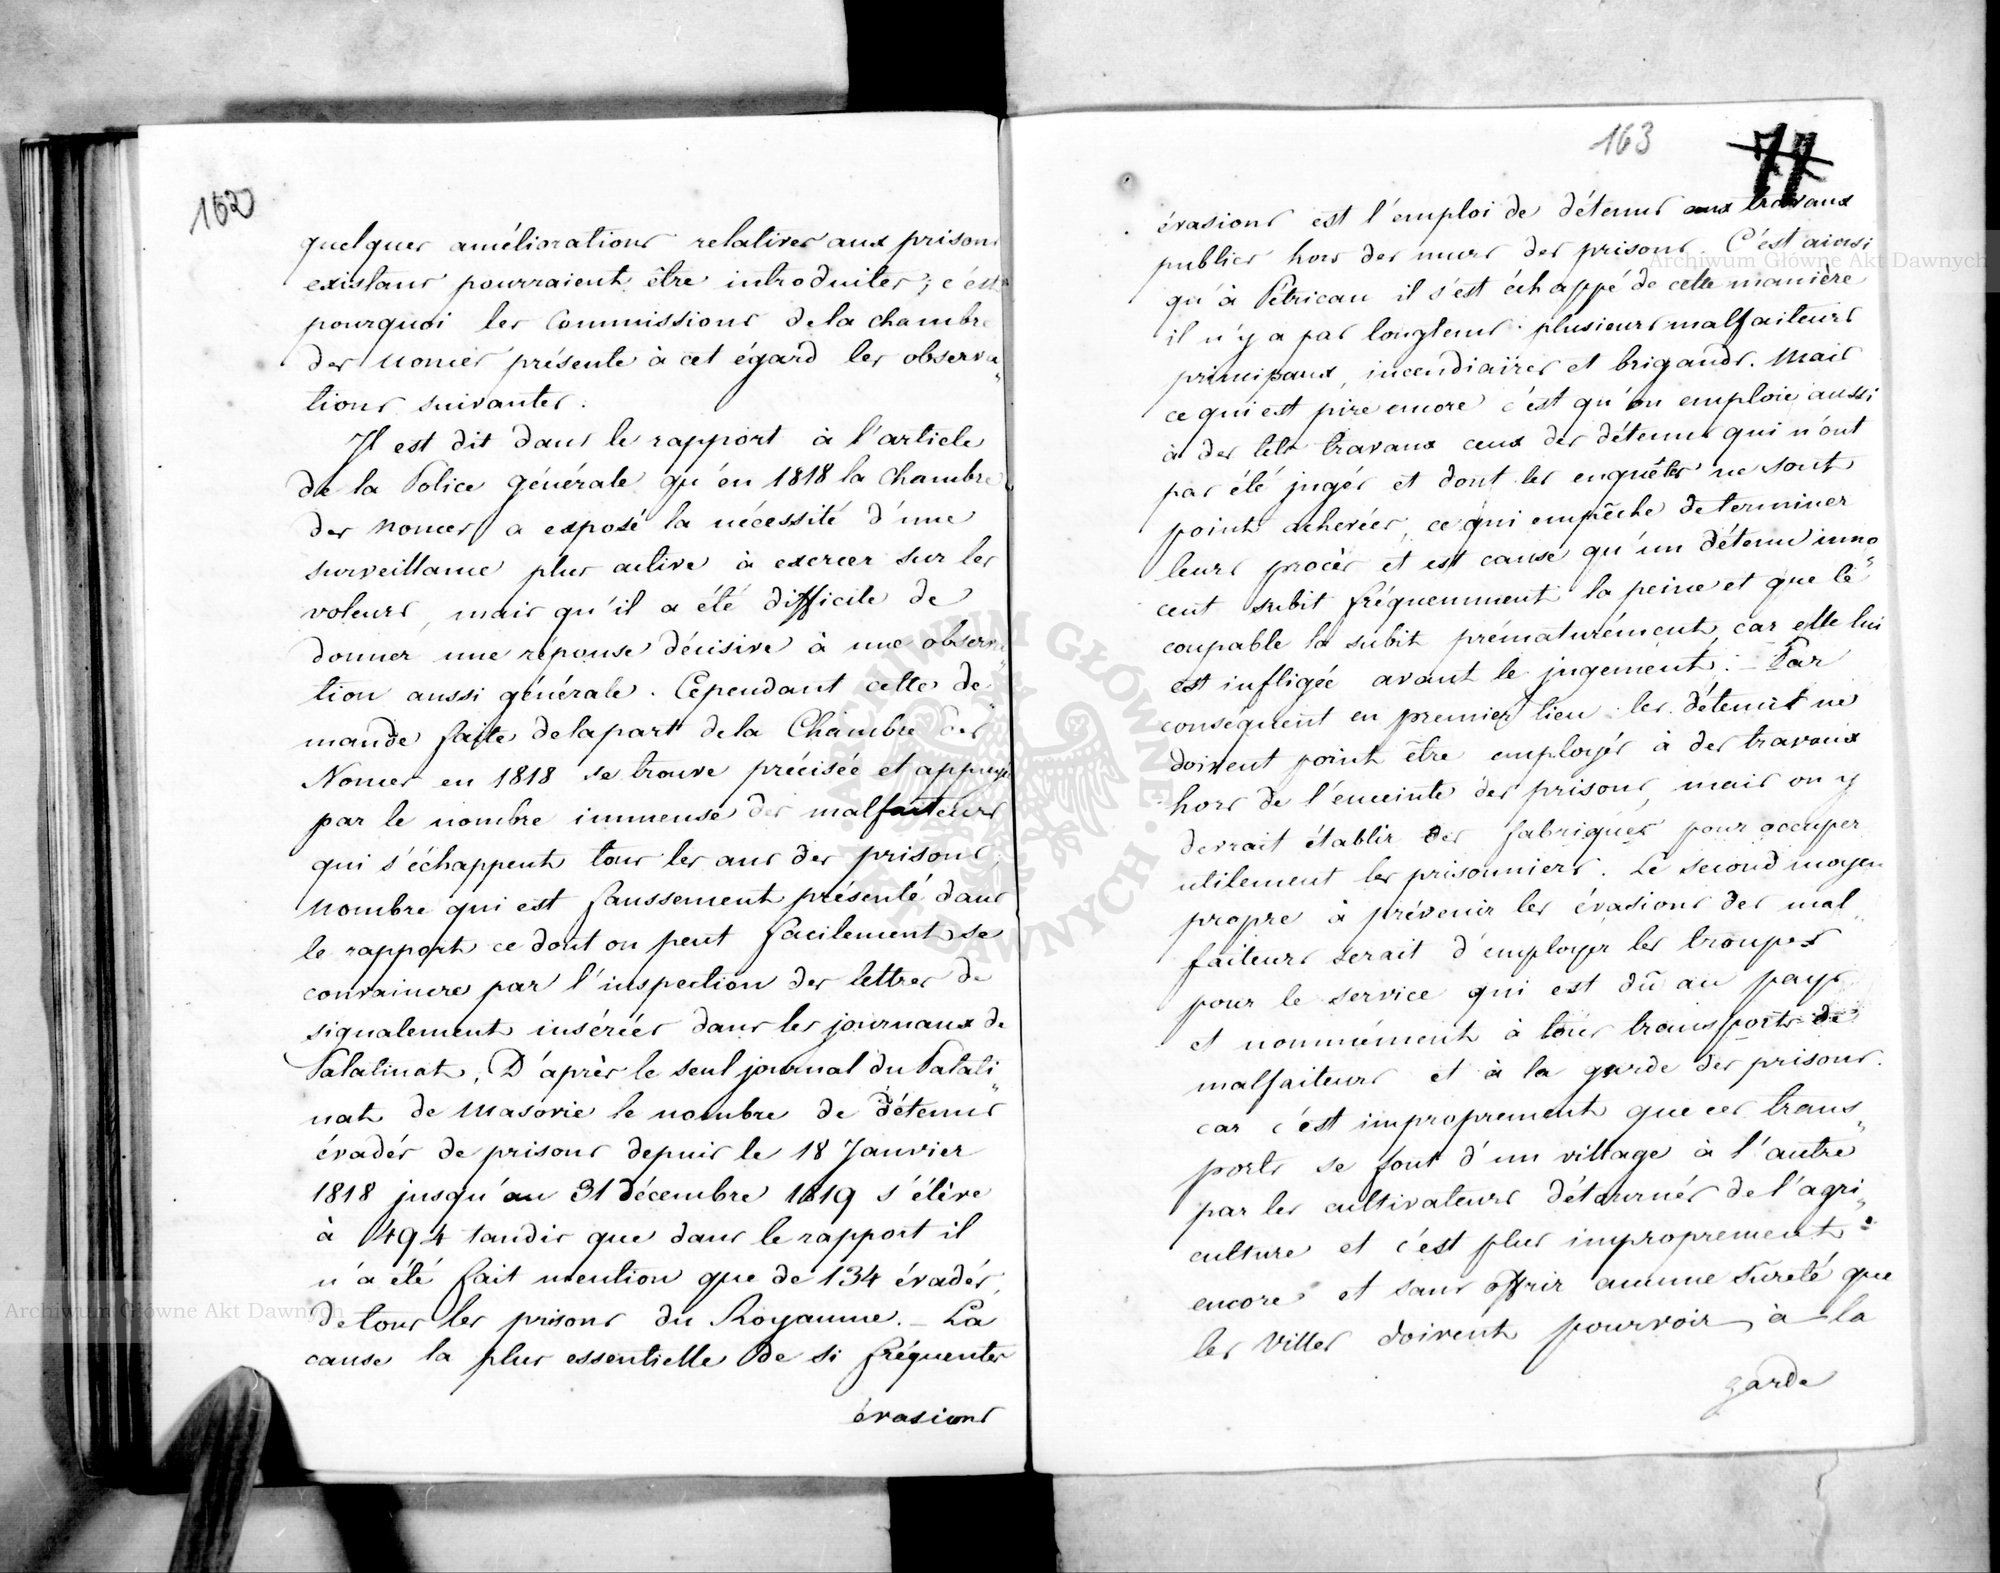 162
quelques améliorations relatives aux prisons
existans pourraient être introduites; c'est
pourquoi les Commissions de la chambre
des Nonces présente à cet égard les observa„
tions suivantes.
Il est dit dans le rapport à l'article
de la Police générale qu'en 1818 la chambre
des nonces a exposé la nécessité d'une
surveillance plus active à exercer sur les
voleurs, mais qu'il a été difficile de
donner une réponse décisive à une observa„
tion aussi générale. Cependant cette de„
mande faite de la part de la Chambre des
Nonces en 1818 se trouve précisée et appuyé
par le nombre immense des malfaiteurs
qui s'échappent tous les ans des prisons.
Nombre qui est faussement présenté dans
le rapport ce dont on peut facilement se
convaincre par l'inspection des lettres de
signalement insérées dans les journaux de
Palatinat. D'après le seul journal du Palati„
nat de Masovie le nombre de détenus
évadés de prisons depuis le 18 Janvier
1818 jusqu'au 31 décembre 1819 s'élève
à 494 tandis que dans le rapport il
n'a été fait mention que de 134 évadés,
de tous les prisons du Royaume. – La
cause la plus essentielle de si fréquentes
évasions
163
77
évasions est l'emploi de détenus aux travaux
publics hors des murs des prisons. C'est ainsi
qu'à Pétricau il s'est échappé de cette manière
il n'y a pas longtems plusieurs malfaiteurs
principaux, incendiaires et brigands. Mais
ce qui est pire encore c'est qu'on emploie aussi
à des tels travaux ceux des détenus qui n'ont
pas été jugés et dont les enquêtes ne sont
point achevées, ce qui empêche de terminer
leurs procès et est cause qu'un détenu inno„
cent subit fréquemment la peine et que le
coupable la subit prématurément, car elle lui
est infligée avant le jugement. – Par
conséquent en premier lieu les détenus ne
doivent point être employés à des travaux
hors de l'enceinte des prisons, mais on y
devrait établir des fabriques pour occuper
utilement les prisonniers. Le second moyen
propre à prévenir les évasions des mal„
faiteurs serait d'employer les troupes
pour le service qui est dû au pays
et nommément à tous transports de
malfaiteurs et à la garde des prisons.
car c'est improprement que ces trans„
ports se font d'un village à l'autre
par les cultivateurs détournés de l'agri„
culture et c'est plus improprement
encore et sans offrir aucune sureté que
les villes doivent pourvoir à la
garde
Archiwum Główne Akt Dawnych
Archiwum Główne Akt Dawnych
ARCHIWUM GŁÓWNE AKT DAWNYCH